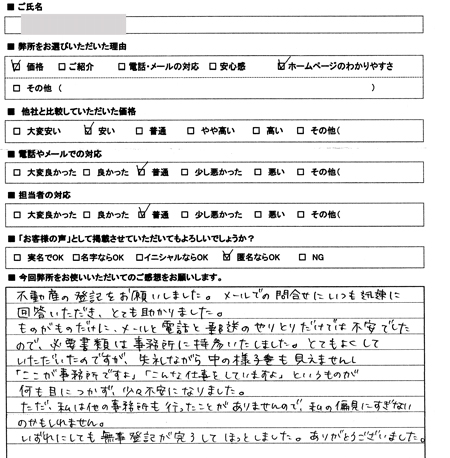 ■ ご氏名
■ 弊所をお選びいただいた理由
☑ 価格 □ ご紹介 □ 電話・メールの対応 □ 安心感 ☑ ホームページのわかりやすさ
□ その他 ( )
■ 他社と比較していただいた価格
□ 大変安い ☑ 安い □ 普通 □ やや高い □ 高い □ その他(
■ 電話やメールでの対応
□ 大変良かった □ 良かった ☑ 普通 □ 少し悪かった □ 悪い □ その他(
■ 担当者の対応
□ 大変良かった □ 良かった ☑ 普通 □ 少し悪かった □ 悪い □ その他(
■ 「お客様の声」として掲載させていただいてもよろしいでしょうか？
□ 実名でOK □ 名字ならOK □ イニシャルならOK ☑ 匿名ならOK □ NG
■ 今回弊所をお使いいただいてのご感想をお願いします。
不動産の登記をお願いしました。メールでの問合せにいつも迅速に
回答いただき、とても助かりました。
ものがものだけに、メールと電話と郵送のやりとりだけでは不安でした
ので、必要書類は事務所に持参いたしました。とてもよくして
いただいたのですが、失礼ながら中の様子も見えませんし
「ここが事務所ですよ」「こんな仕事をしていますよ」というものが
何も目につかず、少々不安になりました。
ただ、私は他の事務所も行ったことがありませんので、私の偏見にすぎない
のかもしれません。
いずれにしても無事登記が完了してほっとしました。ありがとうございました。